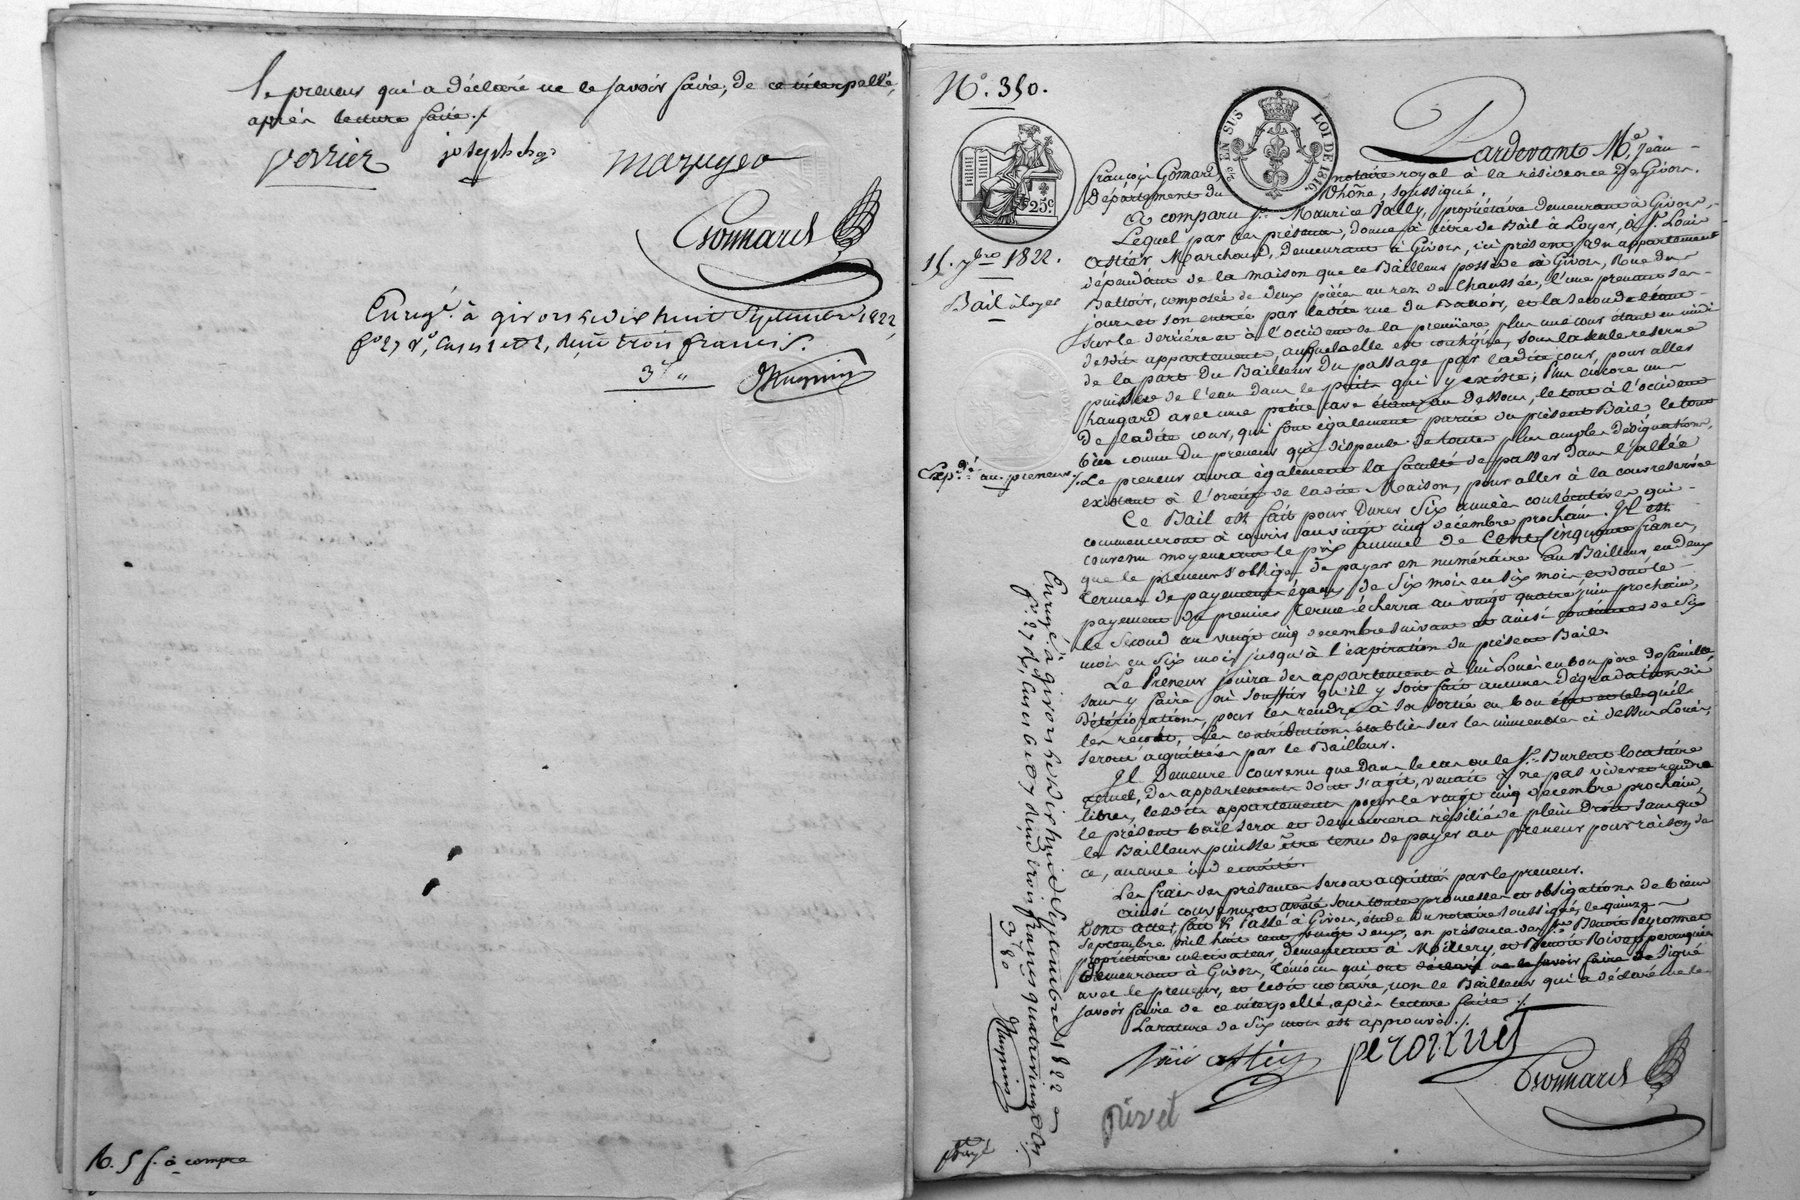 le preneur qui a déclaré ne le savoir faire, de ce interpellé,
après lecture faite ./.
perrier joseph mazuyer
Gonnard
Enregé. à givors le dix huit Septembre 1822,
fo. 27 Vo, Cases 1 et 2, reçu trois francs.
3f "
R. 5 f. à compte
No. 350.
EN SUS LOI DE 1816.
25c
15. 7bre 1822.
Bail à loyer
Expédé. au preneur ./.
Pardevant Me. Jean-
françois Gonnard, notaire royal à la résidence de Givors,
Département du Rhône, soussigné.
A comparu Sr. Maurice Vally, propriétaire demeurant à Givors,
Lequel par ces présentes, donne à titre de Bail à Loyer, à Sr. Louis
Astier Marchand, demeurant à Givors, ici présent, un appartement
dépendant de la maison que le Bailleur possède à Givors, Rue du
Battoir, composée de deux pièces au rez de chaussée, l'une prenant ses
jours et son entrée par ladite rue du Battoir, et la seconde étant
sur le derrière et à l'occident de la première, plus une cour étant en midi
desdits appartements, auxquels elle est contigüe, sous la seule reserve
de la part du Bailleur du passage par ladite cour, pour aller
puiser de l'eau dans le puits qui y existe; plus encore un
hangard avec une petite cave étant au dessous, le tout à l'occident
de ladite cour, qui font également partie du présent Bail, le tout
bien connu du preneur qui dispense de toute plus ample désignation.
Le preneur aura également la faculté de passer dans l'allée
existant à l'orient de ladite Maison, pour aller à la cour reservée
Ce Bail est fait pour durer six années consécutives qui
commenceront à courir au vingt cinq décembre prochain. Il est
convenu moyennant le prix annuel de Cent Cinquante francs,
que le preneur s'oblige de payer en numéraire au Bailleur, en deux
termes de payements égaux de six mois en six mois et dont le
payement du premier terme écherra au vingt quatre juin prochain,
le second au vingt cinq decembre suivant et ainsi continuer de six
mois en six mois jusqu'à l'expiration du présent Bail.
Le Preneur jouira des appartements à lui Loués en bon père de famille
sans y faire ni souffrir qu'il y soit fait aucunes dégradations ni
détériorations, pour les rendre à sa sortie en bon état et tels qu'il
les reçoit, les contributions établies sur les immeubles ci dessus Loués,
seront acquittées par le Bailleur.
Il Demeure convenu que dans le cas ou le Sr. Burlat locataire
actuel, des appartements dont s'agit, venait à ne pas vider et rendre
libres, lesdits appartements pour le vingt cinq decembre prochain,
le présent bail sera et demeurera résilié de plein droit sans que
le Bailleur puisse être tenu de payer au preneur pour raison de
ce, aucune indemnité.
Les frais des présentes seront acquittés par le preneur.
Ainsi convenu et arrêté sous toutes promesses et obligations de biens
Dont acte; fait & Passé à Givors, étude du notaire soussigné, le quinze
Septembre mil huit cent vingt deux, en présence de Srs. Benoit Peyronnet
propriétaire cultivateur, demeurant à Millery, et Benoit Rivet perruquier
demeurant à Givors, témoins qui ont signé
avec le preneur, et ledit notaire, non le Bailleur qui a déclaré ne le
savoir faire de ce interpellé, après lecture faite ./.
La rature de six mots est approuvée ./.
Louis astier peronnet
Gonnard
rivet
Enregé. à givors le dix huit Septembre 1822
fo. 27 Vo, Cases 6 et 7 reçu trois francs quatre vingt dix
3f 80